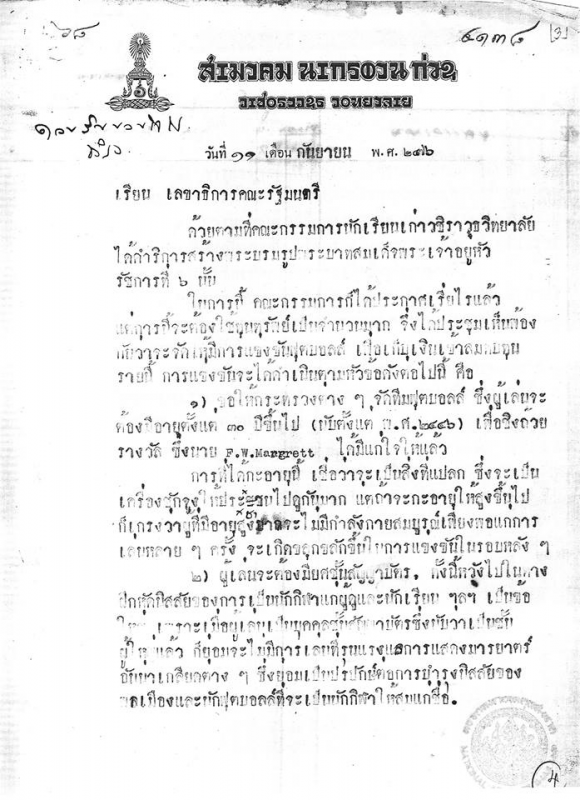 ๕๑๓๘
(3)
สมาคม นักเรียน เก่า
วชิราวุธ วิทยาลัย
วันที่ ๑๑ เดือน กันยายน พ.ศ. ๒๔๗๖
เรียน เลขาธิการคณะรัฐมนตรี
ด้วยตามที่คณะกรรมการนักเรียนเก่าวชิราวุธวิทยาลัย
ได้ดำริการสร้างพระบรมรูปพระบาทสมเด็จพระเจ้าอยู่หัว
รัชการที่ ๖ นั้น
ในการนี้ คณะกรรมการก็ได้ประกาศเรี่ยไรแล้ว
แต่การนี้จะต้องใช้ทุนทรัพย์เป็นจำนวนมาก จึ่งได้ประชุมเห็นพ้อง
กันว่าจะจัดให้มีการแข่งขันฟุตบอลล์ เพื่อเก็บเงินเข้าสมทบทุน
รายนี้ การแข่งขันจะได้ดำเนินตามหัวข้อดังต่อไปนี้ คือ
๑) ขอให้กระทรวงต่าง ๆ จัดทีมฟุตบอลล์ ซึ่งผู้เล่นจะ
ต้องมีอายุตั้งแต่ ๓๐ ปีขึ้นไป (นับตั้งแต่ พ.ศ.๒๔๔๖) เพื่อชิงถ้วย
รางวัล ซึ่งนาย F.W.Margrett ได้มีแก่ใจให้แล้ว
การที่ได้กะอายุนี้ เชื่อว่าจะเป็นสิ่งที่แปลก ซึ่งจะเป็น
เครื่องชักจูงให้ประชาชนไปดูกันมาก แต่ถ้าจะกะอายุให้สูงขึ้นไป
ก็เกรงว่าผู้ที่มีอายุสูงอาจจะไม่มีกำลังกายสมบูรณ์เพียงพอแก่การ
เล่นหลาย ๆ ครั้ง จะเกิดขลุกขลักขึ้นในการแข่งขันในรอบหลัง ๆ
๒) ผู้เล่นจะต้องมียศชั้นสัญญาบัตร. ทั้งนี้หวังไปในทาง
ฝึกหัดนิสสัยของการเป็นนักกีฬาแก่ผู้ดูและนักเรียน ฯลฯ เป็นข้อ
ใหญ่ เพราะเมื่อผู้เล่นเป็นบุคคลชั้นสัญญาบัตรซึ่งนับว่าเป็นชั้น
ผู้ใหญ่แล้ว ก็ย่อมจะไม่มีการเล่นที่รุนแรงและการแสดงมารยาตร์
อันน่าเกลียดต่าง ๆ ซึ่งย่อมเป็นปรปักษ์ต่อการบำรุงนิสสัยของ
พลเมืองและนักฟุตบอลล์ที่จะเป็นนักกีฬาให้สมแก่ชื่อ.
4